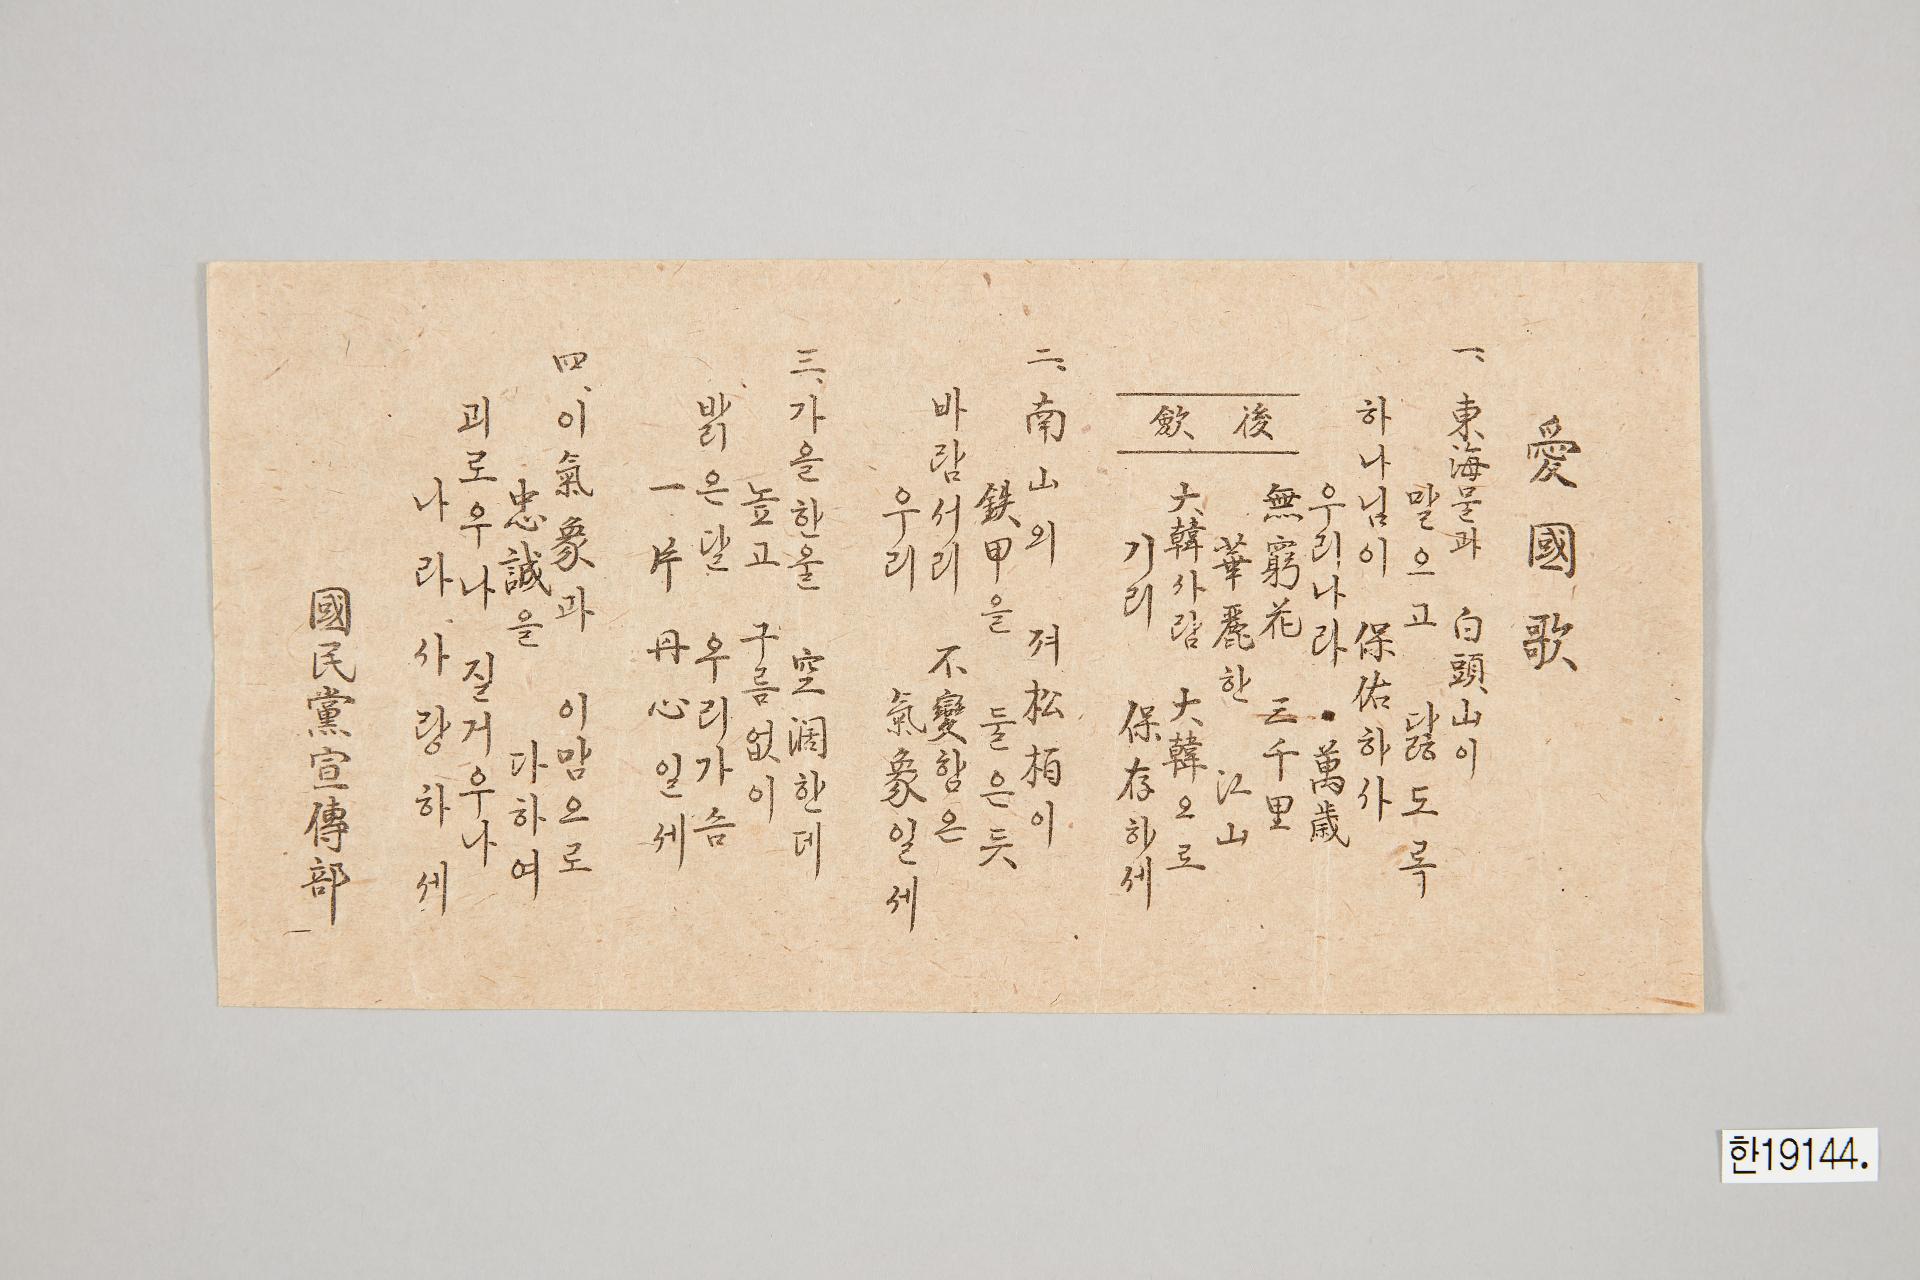 愛國歌
一、東海물과 白頭山이
말으고 닳도록
하나님이 保佑하사
우리나라 萬歲
後歛
無窮花 三千里
華麗한 江山
大韓사람 大韓으로
기리 保存하세
二、南山의 져松栢이
鉄甲을 둘은듯
바람서리 不變함은
우리 氣象일세
三、가을한울 空濶한데
높고 구름없이
밝은달 우리가슴
一片丹心일세
四、이氣象과 이맘으로
忠誠을 다하여
괴로우나 질거우나
나라사랑하세
國民黨宣傳部
한19144.